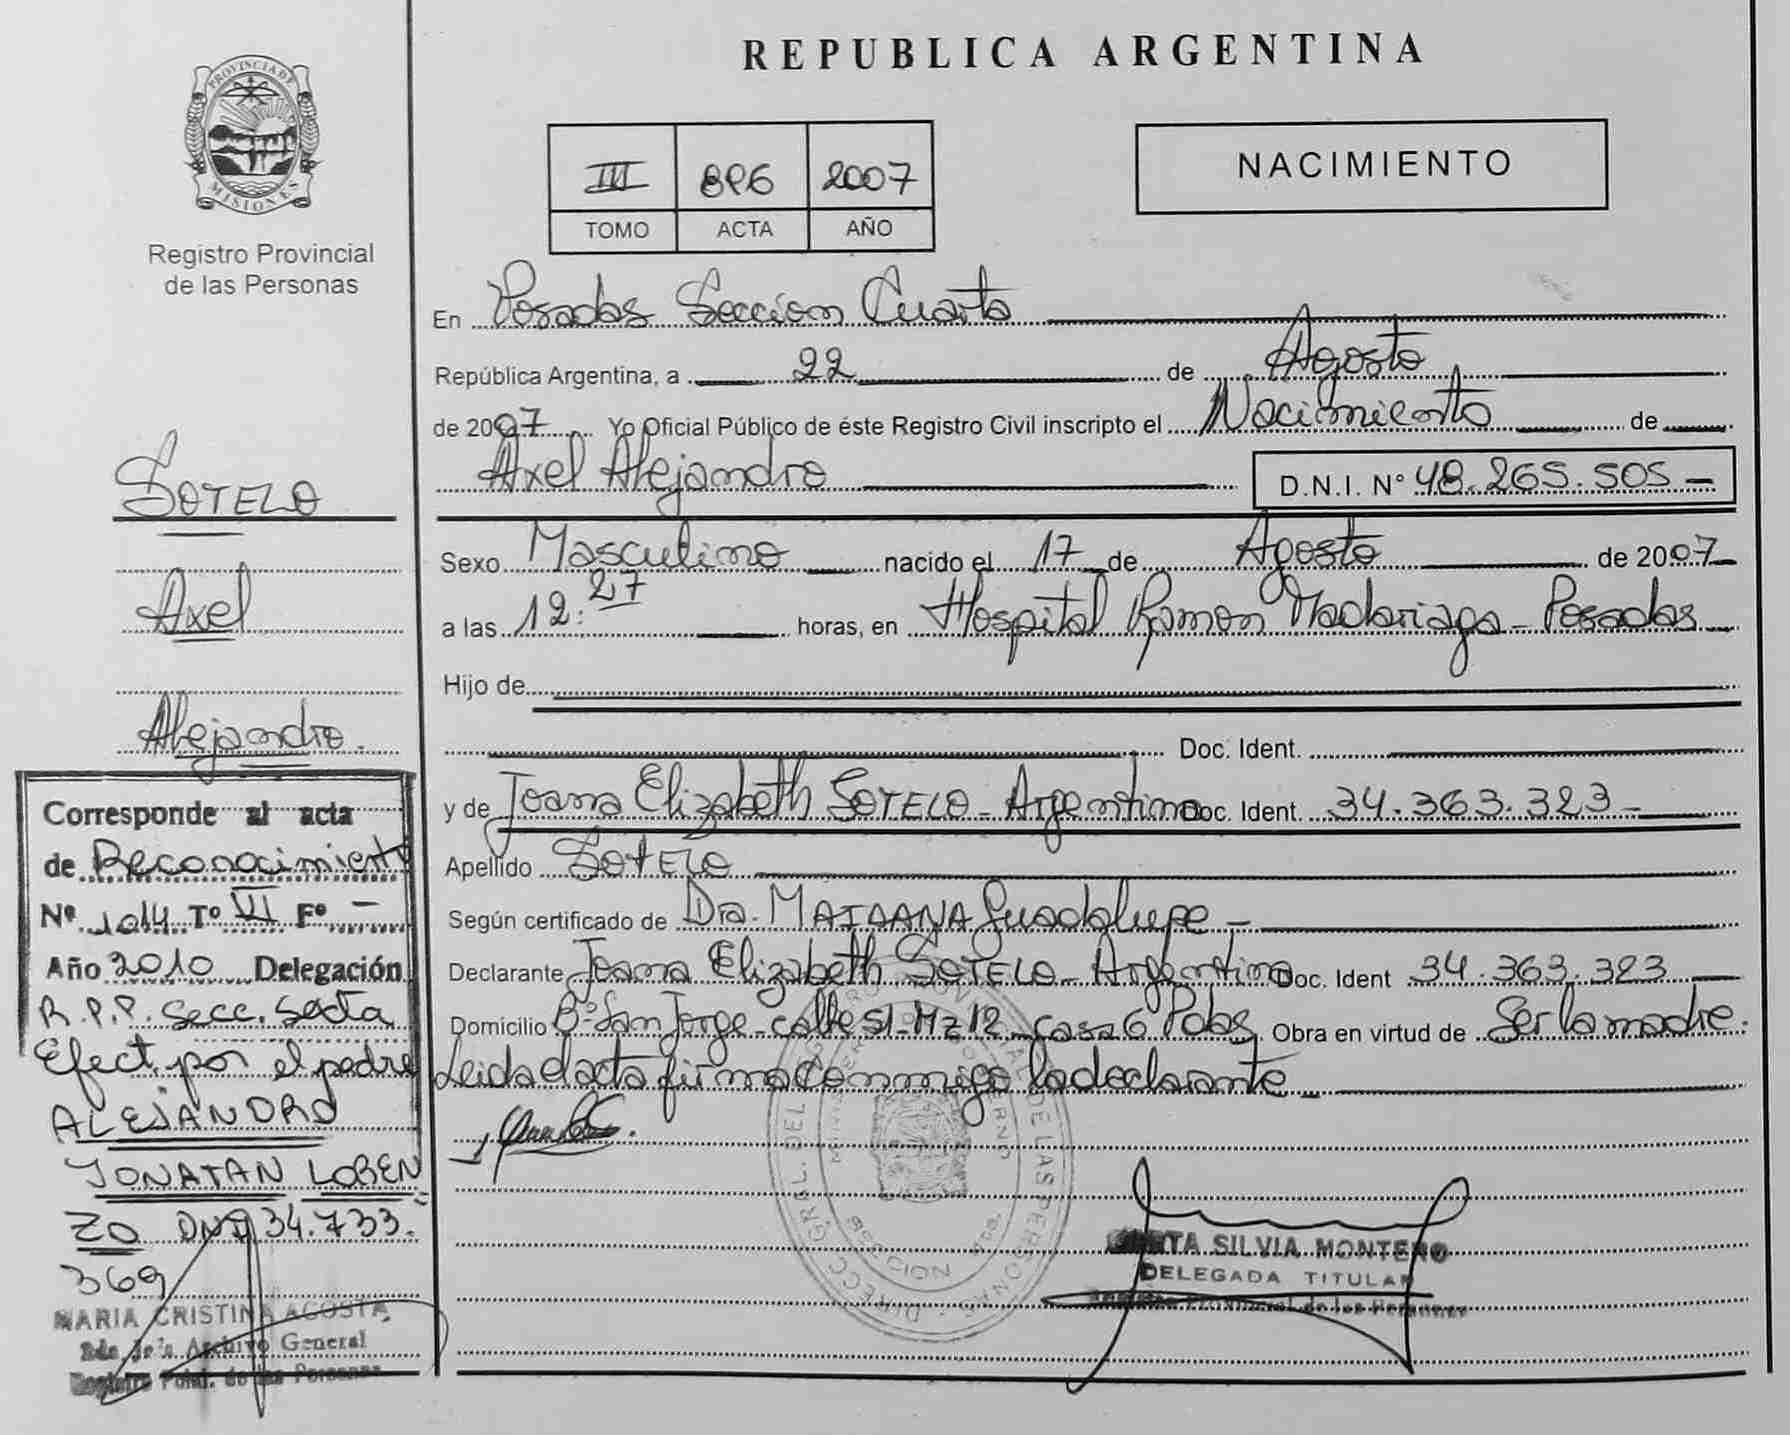 REPUBLICA ARGENTINA
PROVINCIA DE
MISIONES
Registro Provincial
de las Personas
III 896 2007
TOMO ACTA AÑO
NACIMIENTO
En Posadas Seccion Cuarta
República Argentina, a 22 de Agosto
de 2007 Yo Oficial Público de éste Registro Civil inscripto el Nacimiento de
Axel Alejandro D.N.I. N° 48.265.505
Sexo Masculino nacido el 17 de Agosto de 2007
a las 12:27 horas, en Hospital Ramon Madariaga - Posadas
Hijo de
Doc. Ident.
y de Joana Elizabeth SOTELO - Argentina Doc. Ident. 34.363.323
Apellido SOTELO
Según certificado de Dra. Guadalupe
Declarante Joana Elizabeth SOTELO - Argentina Doc. Ident 34.363.323
Domicilio B° San Jorge - calle 51 - Mz 12 - casa 6 Pdas Obra en virtud de Ser la madre.
Leida el acta firma conmigo la declarante
SILVIA MONTERO
DELEGADA TITULAR
Registro Provincial de las Personas
SOTELO
Axel
Alejandro.
Corresponde al acta
de Reconocimiento
Nº 1014 Tº VI Fº -
Año 2010 Delegación
R.P.P. Secc. Sexta
Efect. por el padre
ALEJANDRO
JONATAN LOREN
ZO DNI 34.733.
369
MARIA CRISTINA ACOSTA
Archivo General
de las Personas